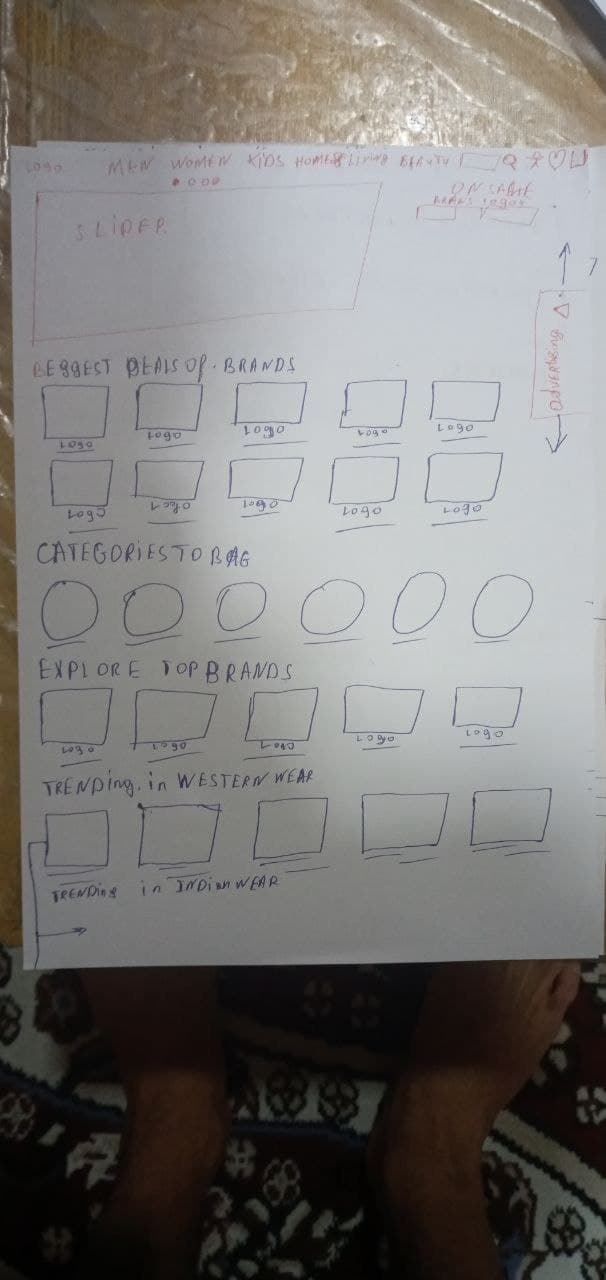 LOGO MEN WOMEN KIDS HOME&LIVING BEAUTY
ON SABLE
BRANS LOGOS
SLIDER
Advertising
BEGGEST DEALS OF. BRANDS
LOGO LOGO LOGO LOGO LOGO
LOGO LOGO LOGO LOGO LOGO
CATEGORIES TO BAG
EXPLORE TOP BRANDS
LOGO LOGO LOGO LOGO LOGO
TRENDing. in WESTERN WEAR
TRENDing in INDian WEAR